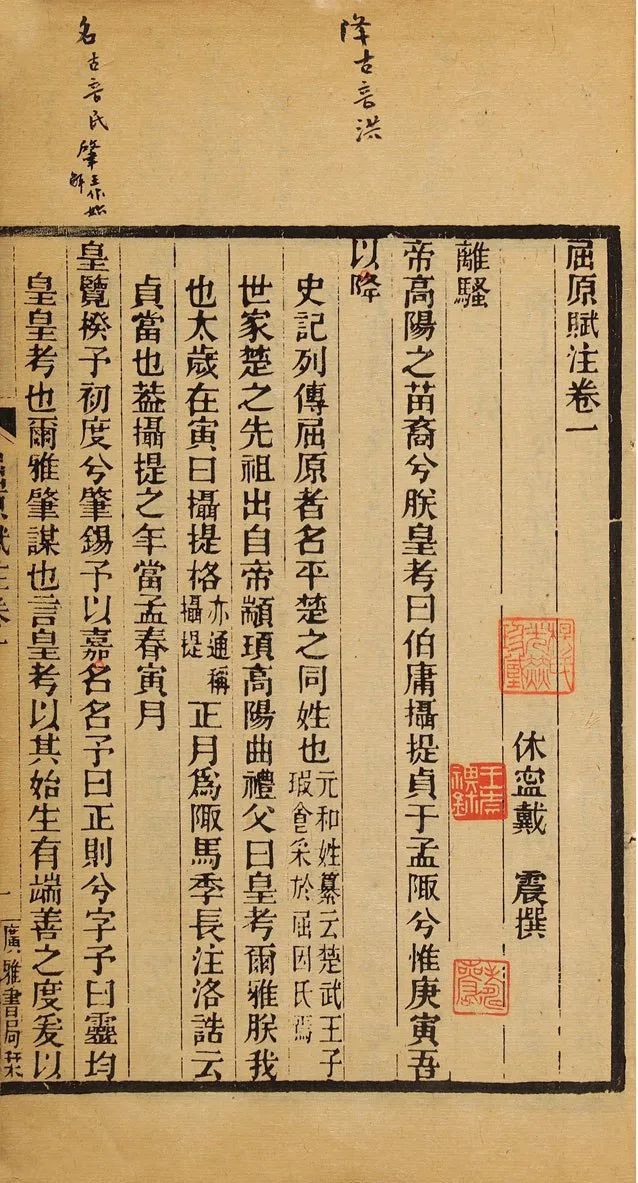 降古音洪
名古音民肇王作始解
屈原賦注卷一
休寍戴 震撰
離騷
帝高陽之苗裔兮朕皇考曰伯庸攝提貞于孟陬兮惟庚寅吾
以降
史記列傳屈原者名平楚之同姓也元和姓纂云楚武王子瑕食采於屈因氏焉
世家楚之先祖出自帝顓頊高陽曲禮父曰皇考爾雅朕我
也太歲在寅曰攝提格亦通稱攝提正月爲陬馬季長注洛誥云
貞當也葢攝提之年當孟春寅月
皇覽揆予初度兮肇錫予以嘉名名予曰正則兮字予曰靈均
皇皇考也爾雅肇謀也言皇考以其始生有端善之度爰以
廣雅書局栞